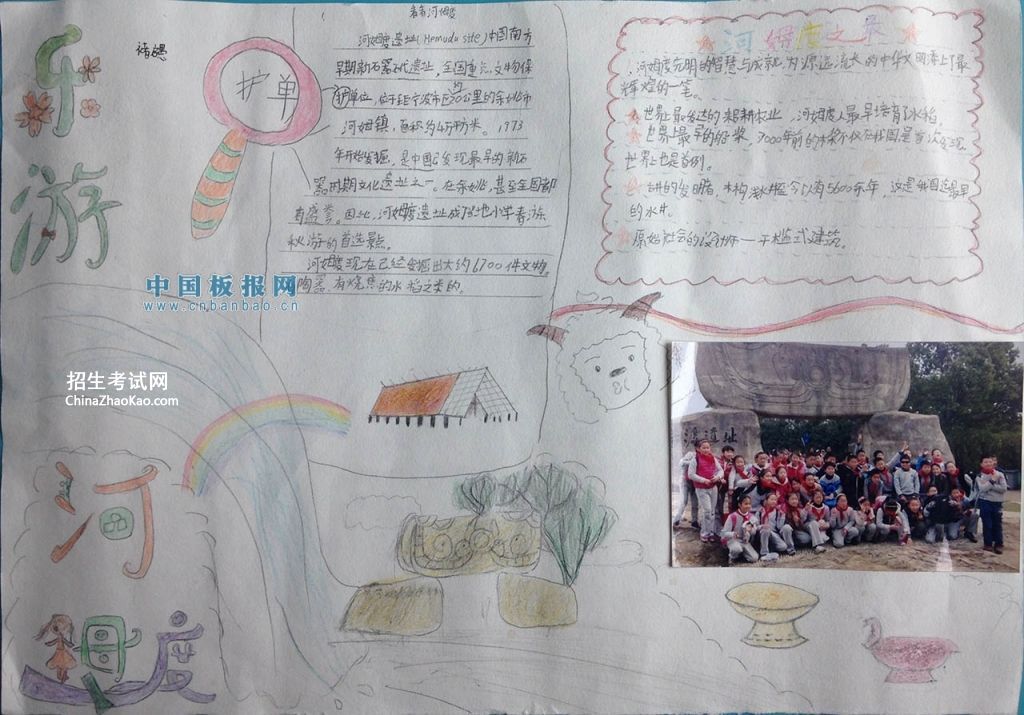 乐
游
河
姆
度
护单
看看河姆度
河姆度遗址(Hemudu site)中国南方
早期新石器时代遗址,全国重点文物保
护单位,位于距宁波市区约20公里的余姚市
河姆镇,面积为4万平方米。1973
年开始发掘,是中国已发现最早的新石
器时期文化遗址之一。在余姚,甚至全国都
有盛誉。因此,河姆度遗址成为当地小学春游
秋游的首选景点。
河姆度现在已经发掘出大约6700件文物,
陶器、有烧焦的水稻之类的。
河姆度之最
河姆度先明的智慧与成就,为源远流长的中华文明添上了最
辉煌的一笔。
世界最发达的耜耕农业,河姆度人最早培育了水稻。
世界上最早的船桨,7000年前的木桨不仅在我国是首次发现,
世界上也是首例。
水井的发明者,木构浅水井距今以有5600余年,这是我国迄今最早
的水井。
原始社会的设计师——干栏式建筑。
中国板报网
www.cnbanbao.cn
招生考试网
ChinaZhaoKao.com
遗址